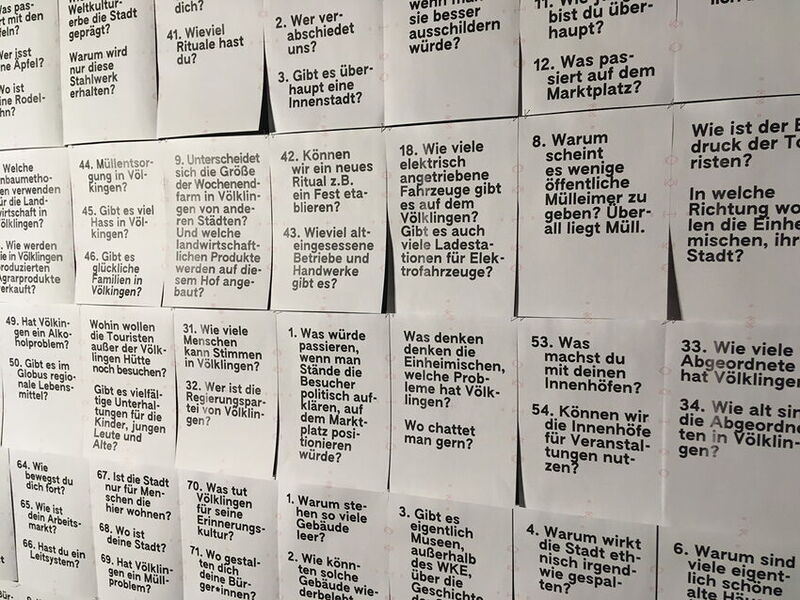 Was pas-
rt mit den
feln?
Wer isst
ne Äpfel?
Wo ist
ine Rodel-
hn?
Weltkultur-
erbe die Stadt
geprägt?
Warum wird
nur diese
Stahlwerk
erhalten?
dich?
41. Wieviel
Rituale hast
du?
2. Wer ver-
abschiedet
uns?
3. Gibt es über-
haupt eine
Innenstadt?
wenn man
sie besser
ausschildern
würde?
bist du über-
haupt?
12. Was pas-
siert auf dem
Marktplatz?
Welche
nbaumetho-
en verwenden
für die Land-
wirtschaft in
ölklingen?
. Wie werden
ie in Völklingen
roduzierten
Agrarprodukte
verkauft?
44. Müllentsor-
gung in Völ-
kingen?
45. Gibt es viel
Hass in Völ-
kingen?
46. Gibt es
glückliche
Familien in
Völkingen?
9. Unterscheidet
sich die Größe
der Wochenend-
farm in Völklin-
gen von ande-
ren Städten?
Und welche
landwirtschaft-
lichen Produkte
werden auf die-
sem Hof ange-
baut?
42. Können
wir ein neues
Ritual z.B.
ein Fest eta-
blieren?
43. Wieviel alt-
eingesessene
Betriebe und
Handwerke
gibt es?
18. Wie viele
elektrisch
angetriebene
Fahrzeuge gibt
es auf dem
Völklingen?
Gibt es auch
viele Ladesta-
tionen für Elek-
trofahrzeuge?
8. Warum
scheint
es wenige
öffentliche
Mülleimer zu
geben? Über-
all liegt Müll.
Wie ist der E
druck der To
risten?
In welche
Richtung wo
len die Einhe
mischen, ihr
Stadt?
49. Hat Völkin-
gen ein Alko-
holproblem?
50. Gibt es im
Globus regio-
nale Lebens-
mittel?
Wohin wollen
die Touristen
außer der Völk-
lingen Hütte
noch besuchen?
Gibt es vielfäl-
tige Unterhal-
tungen für die
Kinder, jungen
Leute und
Alte?
31. Wie viele
Menschen
kann Stimmen
in Völklingen?
32. Wer ist die
Regierungspar-
tei von Völklin-
gen?
1. Was würde
passieren,
wenn man
Stände die
Besucher
politisch auf-
klären, auf
dem Markt-
platz posi-
tionieren
würde?
Was denken
denken die
Einheimischen,
welche Prob-
leme hat Völk-
lingen?
Wo chattet
man gern?
53. Was
machst du
mit deinen
Innenhöfen?
54. Können wir
die Innenhöfe
für Veranstal-
tungen nut-
zen?
33. Wie viele
Abgeordnete
hat Völklingen
34. Wie alt sin
die Abgeordne
ten in Völklin-
gen?
64. Wie
bewegst du
dich fort?
65. Wie ist
dein Arbeits-
markt?
66. Hast du ein
Leitsystem?
67. Ist die Stadt
nur für Men-
schen die
hier wohnen?
68. Wo ist
deine Stadt?
69. Hat Völklin-
gen ein Müll-
problem?
70. Was tut
Völklingen
für seine
Erinnerungs-
kultur?
71. Wo gestal-
ten dich
deine Bür-
ger*innen?
1. Warum ste-
hen so viele
Gebäude
leer?
2. Wie könn-
ten solche
Gebäude wie-
derbelebt
3. Gibt es
eigentlich
Museen,
außerhalb
des WKE,
über die
Geschichte
4. Warum wirkt
die Stadt eth-
nisch irgend-
wie gespal-
ten?
6. Warum sind
viele eigent-
lich schöne
alte Hä